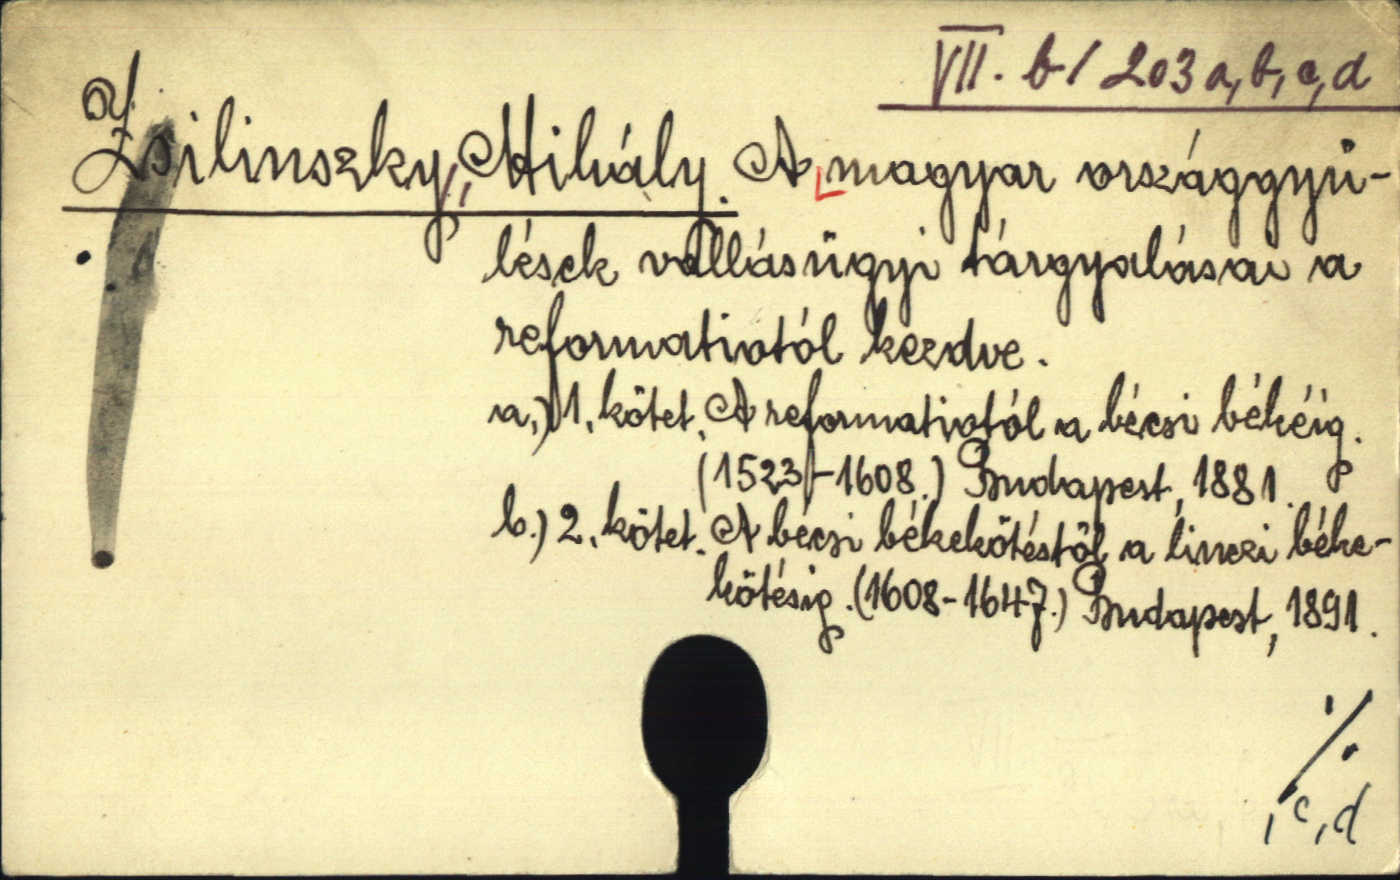 VII. b/ 203 a, b, c, d
Zsilinszky, Mihály. A magyar országgyü-
lések vallásügyi tárgyalásai a
reformatiotól kezdve.
a.) 1. kötet. A reformatiotól a bécsi békéig.
(1523-1608.) Budapest, 1881.
b.) 2. kötet. A bécsi békekötéstől a linczi béke-
kötésig. (1608-1647.) Budapest, 1891.
./.
, c, d